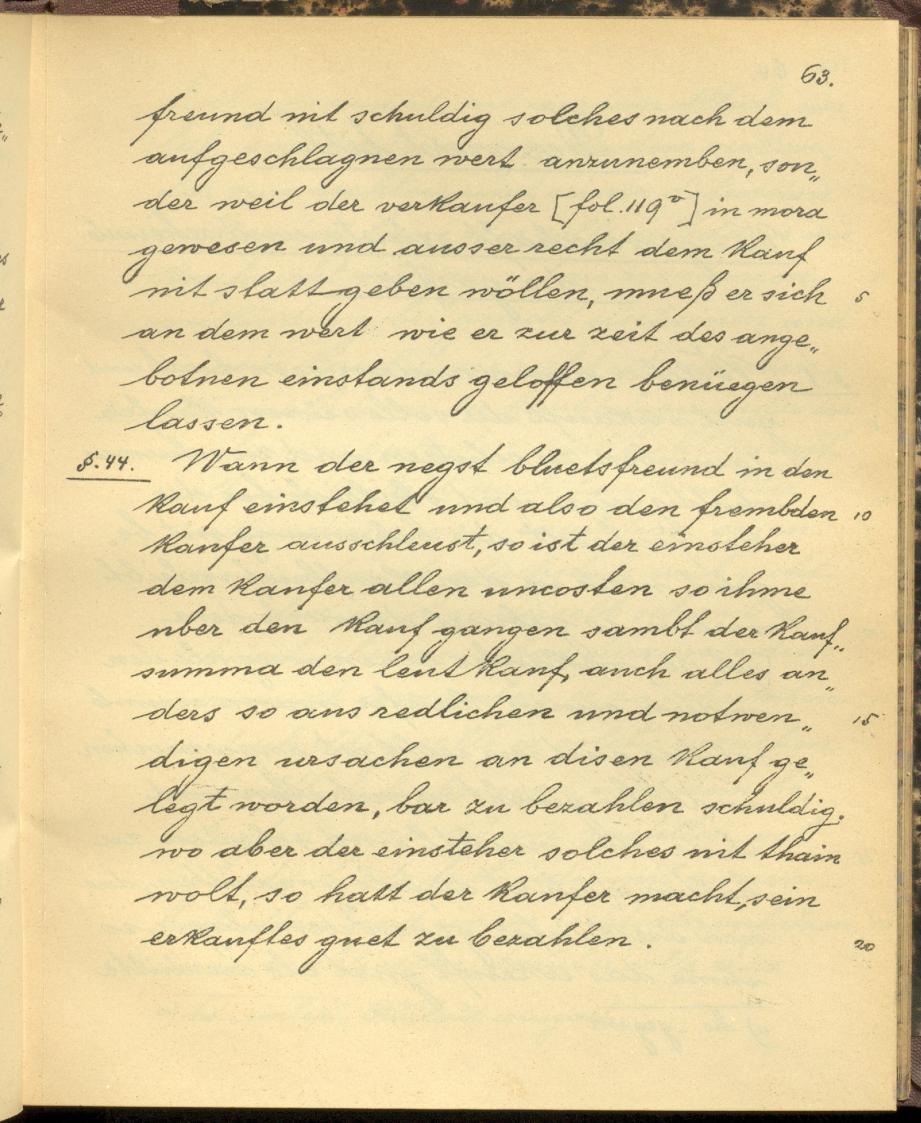 63.
freund nit schuldig solches nach dem
aufgeschlagnen wert anzunemben, son„
der weil der verkaufer [fol. 119v] in mora
gewesen und ausser recht dem kauf
nit statt geben wöllen, mueß er sich 5
an dem wert wie er zur zeit des ange„
botnen einstands geloffen benüegen
lassen.
§. 44. Wann der negst bluetsfreund in den
kauf einstehet und also den frembden 10
kaufer ausschleust, so ist der einsteher
dem kaufer allen uncosten so ihme
uber den kauf gangen sambt der kauf„
summa den leutkauf, auch alles an„
ders so aus redlichen und notwen„ 15
digen ursachen an disen kauf ge„
legt worden, bar zu bezahlen schuldig.
wo aber der einsteher solches nit thain
wolt, so hatt der kaufer macht, sein
erkauftes guet zu bezahlen. 20